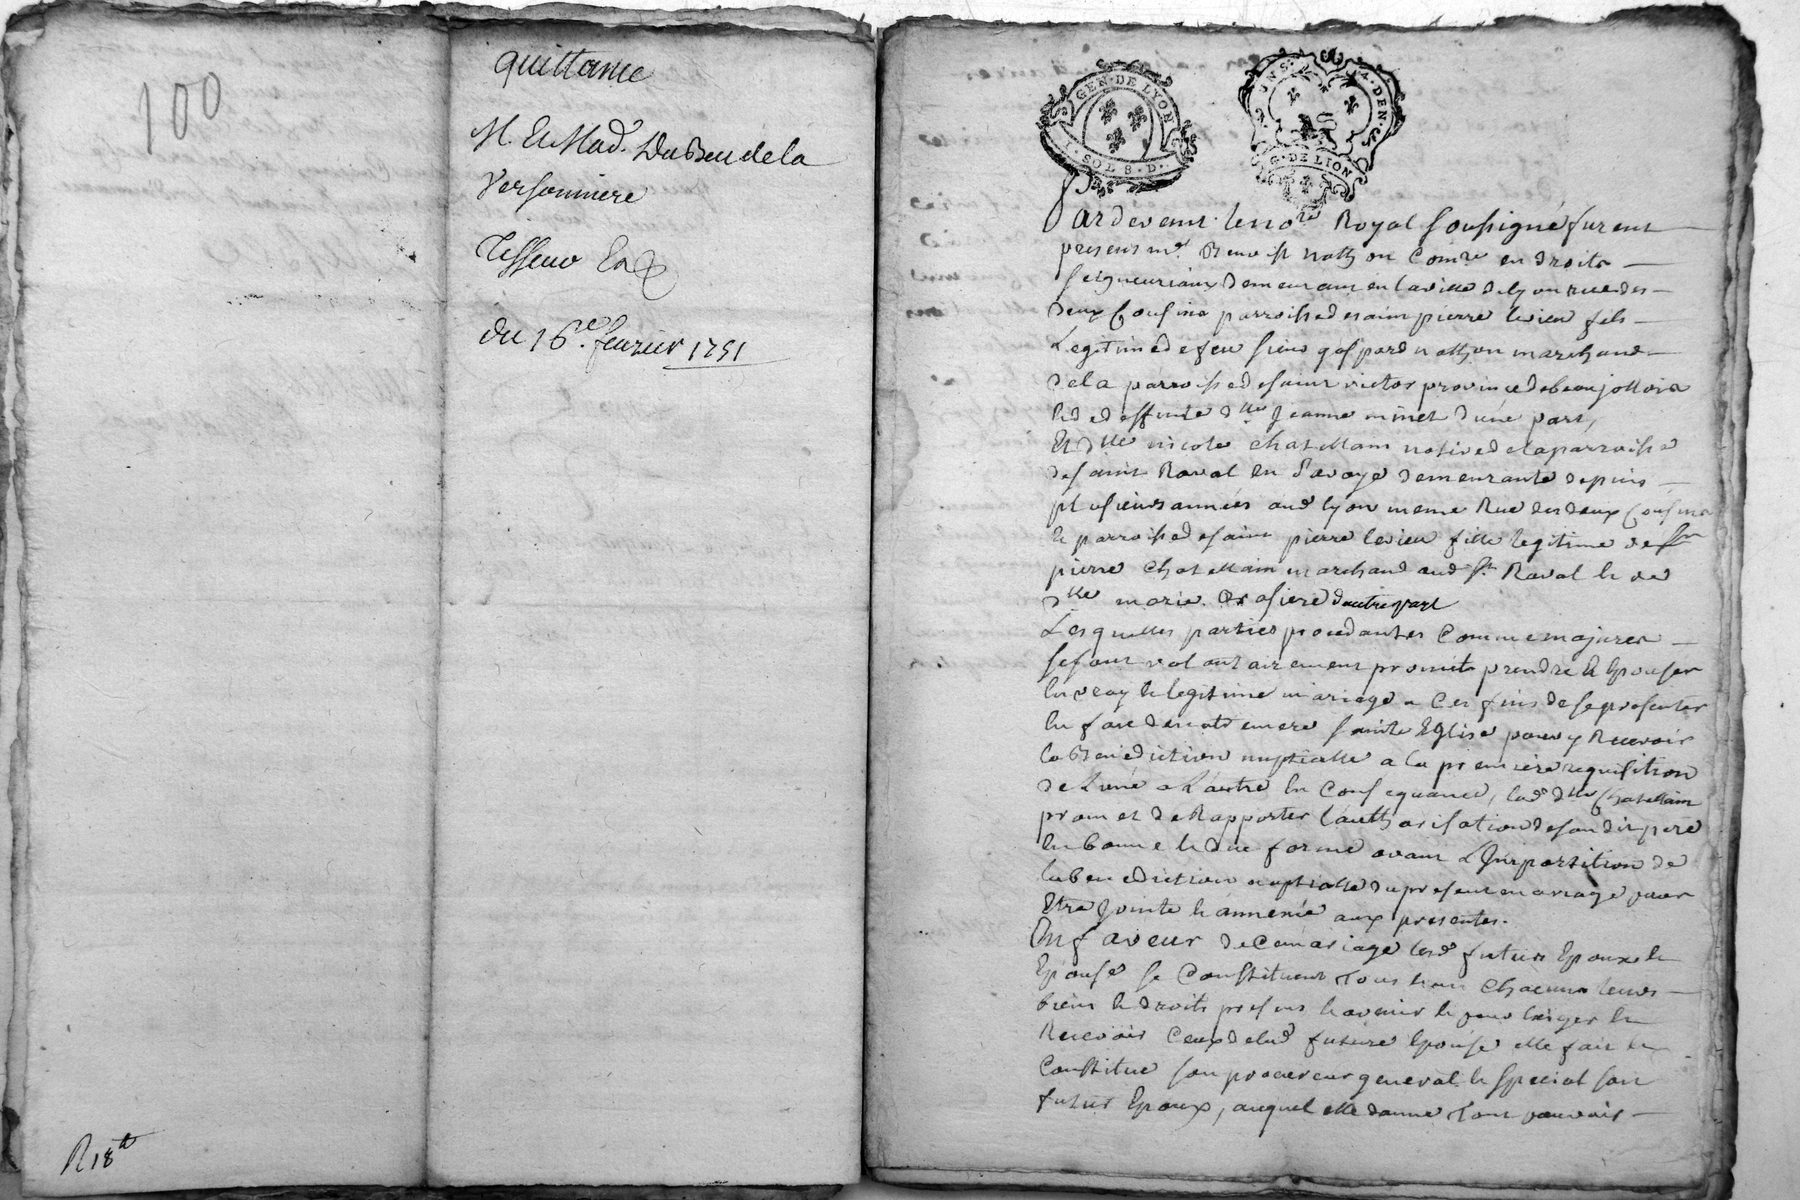 100
quittance
M. Et Mad.e DuBeu de la
Versonniere
Tesseur
du 16.e feuvrier 1751
R 18 d
GEN·DE LYON
I·SOL 8·D·
G·DE LION
Pardevant le no.re Royal soussigné furent
presens m.r Benoist nathon Com.re en droits
seigneuriaux demeurant en la ville de lyon rue des
deux Cousins parroisse de saint pierre levieu fils
Legitime de feu sieur gaspard nathon marchand
de la parroisse de saint victor province de beaujollois
Et de deffunte d.lle Jeanne minet d'une part,
Et d.lle nicole Chatellain native de la parroisse
de saint Raval en Savoye demeurante depuis
plusieurs années aud. lyon meme Rue des deux Cousins
Et parroisse de saint pierre levieu fille legitime de sr
pierre Chatellain marchand aud. St. Raval Et de
d.lle marie d'autre part
Lesquelles parties procedantes Comme majures
se sont volontairement promits prendre Et Epouser
En vray Et legitime mariage a Ces fins de se presenter
En face de notre mere sainte Eglise pour y Recevoir
la Benediction nuptialle a la premiere requisition
de L'une a L'autre En Consequance, lad. d.lle Chatellain
promet de Rapporter l'authorisation de son dit pere
En bonne Et due forme avant L'Impartition de
la benediction nuptialle du present mariage pour
Etre Jointe Et annexée aux presentes.
En faveur de Ce mariage lesd. futurs Epoux Et
Epouse se Constituent Tous Et un Chacuns leurs
biens Et droits presens Et avenir Et pour Exiger Et
Recevoir Ceux de lad. future Epouse elle fait Et
Constitue son procureur general Et special son
futur Epoux, auquel elle donne Tout pouvoir